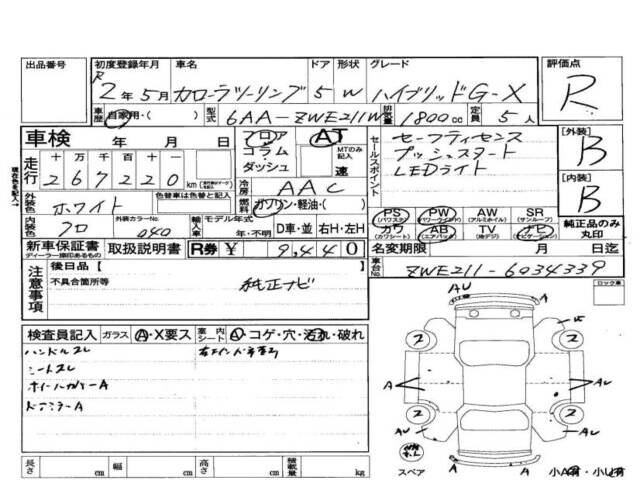 出品番号 初度登録年月 車名 ドア 形状 グレード 評価点
R 2年5月 カローラツーリング 5 W ハイブリッドG-X R
車歴 自家用・( 型式 6AA-ZWE211W 排気量 1800cc 定員 5人
車検 年 月 日 フロア AT セールスポイント セーフティセンス [外装]
コラム MTのみ記入 プッシュスタート B
走行 十万千百十一 ダッシュ 速 LEDライト
267220km 冷房 AAC [内装]
外装色 ホワイト 色替車は色替と記入 燃料 ガソリン・軽油・( B
PS PW AW SR 純正品のみ丸印
(パワステ) (パワーウィンド) (アルミホイル) (サンルーフ)
内装色 クロ 外装カラーNo. 040 輸入車 モデル年式 年・不明 D車・並 右H・左H
カワ AB TV ナビ
(カワシート) (エアバック) (地デジ) (ナビゲーション)
新車保証書 取扱説明書 R券 ¥ 9,440 名変期限 月 日迄
ディーラー捺印あるもの
車台No. ZWE211-6034339
注意事項 後日品[ ]
不具合箇所等 純正ナビ
ロック車
検査員記入 ガラス A・X要ス 室内 シート A・コゲ・穴・汚れ・破れ
ハンドルスレ
シートスレ
ホイールカバーA
ドアミラーA
AU
2 2
A A AU
2 2
AU AU
A A
スペア 小A有・小U有
長さ cm 幅 cm 高さ cm 積載量 kg